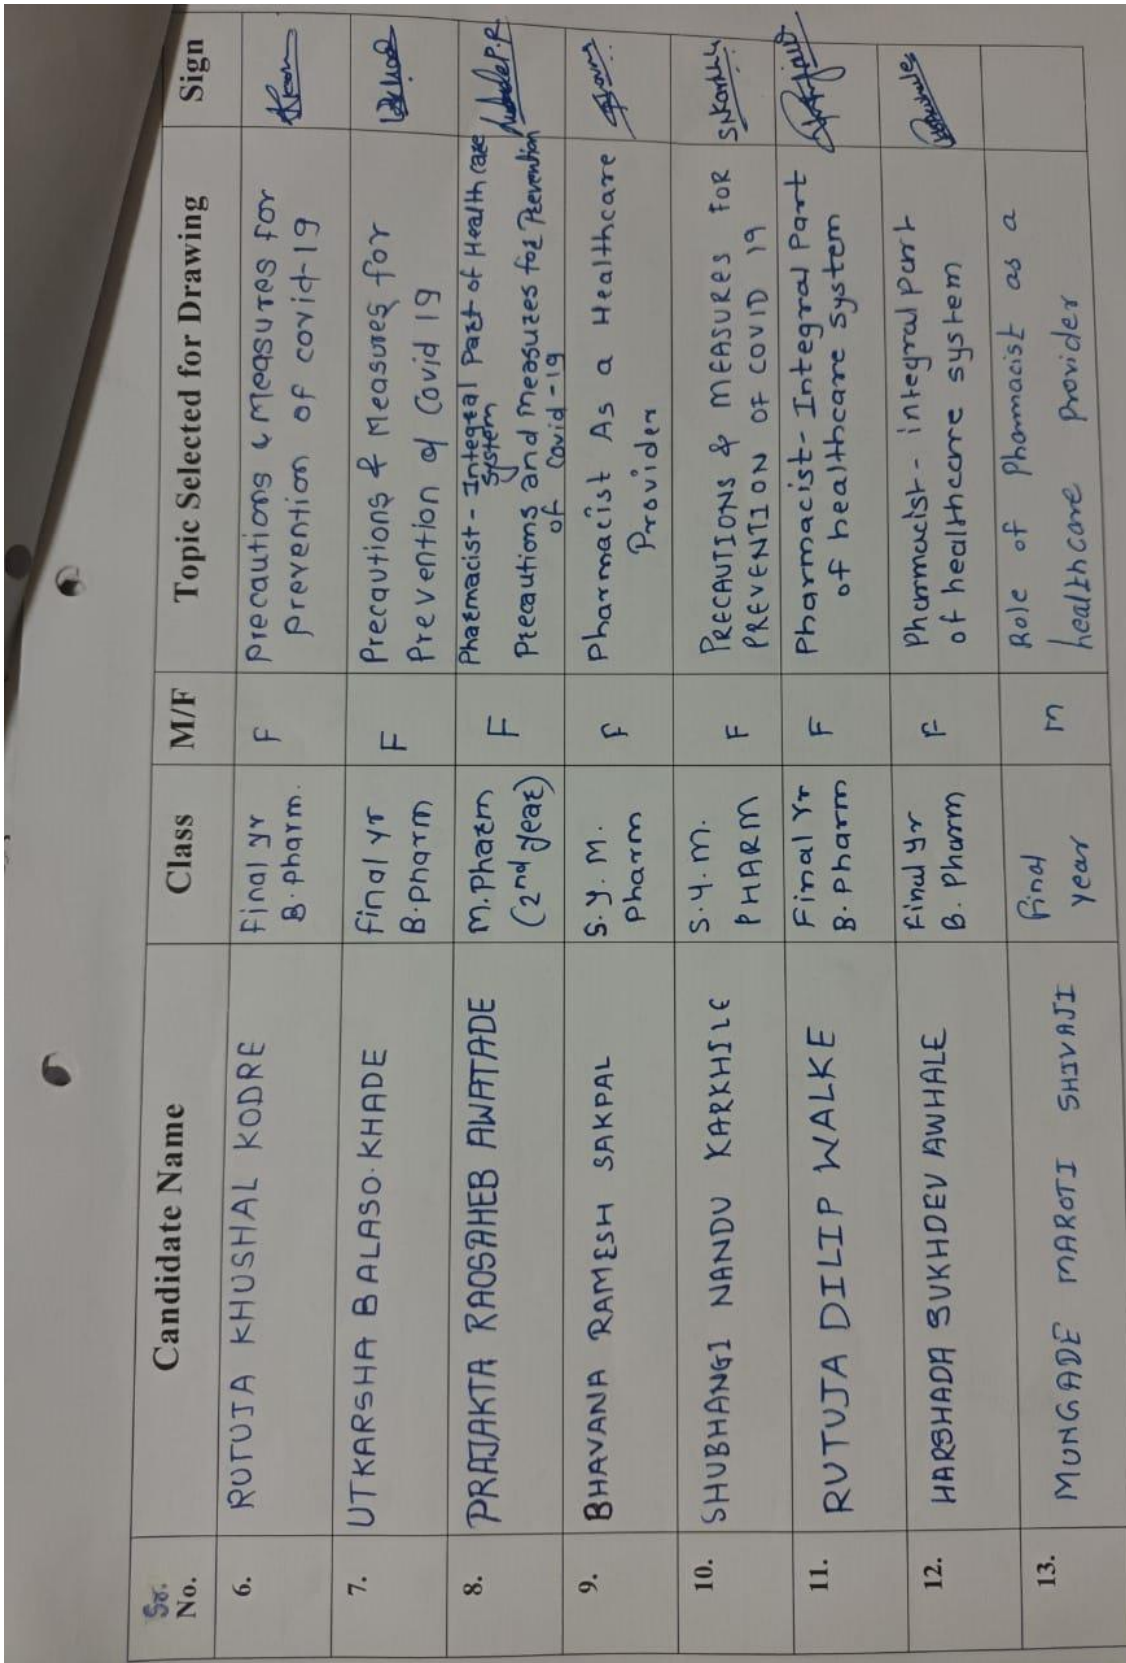 Sr. No. Candidate Name Class M/F Topic Selected for Drawing Sign
6. RUTUJA KHUSHAL KODRE Final yr F Precautions & Measures for
B. Pharm. prevention of covid-19
7. UTKARSHA BALASO. KHADE Final yr F Precautions & Measures for
B. Pharm Prevention of Covid 19
8. PRAJAKTA RAOSAHEB AWATADE M. Pharm F Pharmacist - Integral Part of Healthcare
(2nd year) System
Precautions and Measures for Prevention
of Covid-19
9. BHAVANA RAMESH SAKPAL S.Y. M. F Pharmacist As a Healthcare
Pharm Provider
10. SHUBHANGI NANDU KARKHILE S.Y.M. F PRECAUTIONS & MEASURES FOR
PHARM PREVENTION OF COVID 19
11. RUTUJA DILIP WALKE Final Yr F Pharmacist - Integral Part
B. Pharm of healthcare system
12. HARSHADA SUKHDEV AWHALE Final yr F Pharmacist - integral part
B. Pharm of healthcare system
13. MUNGADE MAROTI SHIVAJI Final M Role of Pharmacist as a
year healthcare provider